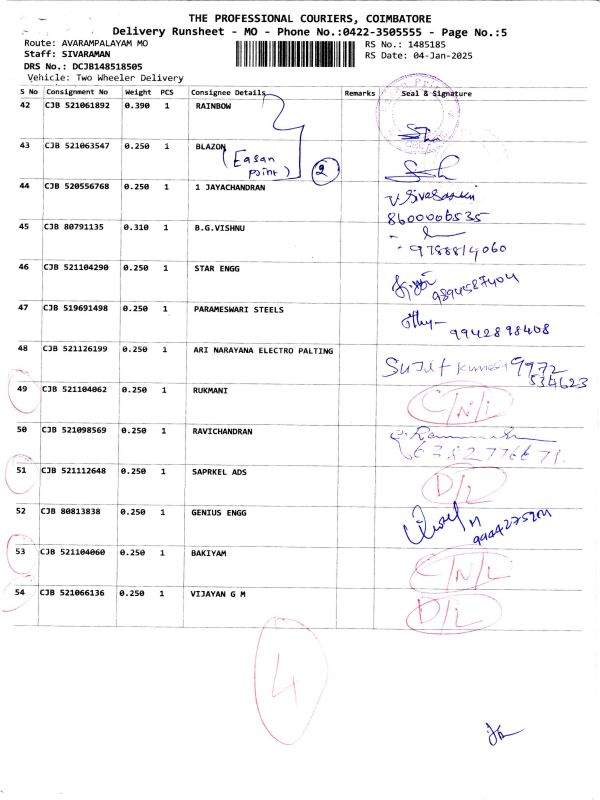 THE PROFESSIONAL COURIERS, COIMBATORE
Delivery Runsheet - MO - Phone No.:0422-3505555 - Page No.:5
Route: AVARAMPALAYAM MO
RS No.: 1485185
Staff: SIVARAMAN
RS Date: 04-Jan-2025
DRS No.: DCJB148518505
Vehicle: Two Wheeler Delivery
S No Consignment No Weight PCS Consignee Details Remarks Seal & Signature
42 CJB 521061892 0.390 1 RAINBOW
43 CJB 521063547 0.250 1 BLAZON
(Easan point) 2
44 CJB 520556768 0.250 1 1 JAYACHANDRAN
V.Sivasankari
8600006535
45 CJB 80791135 0.310 1 B.G.VISHNU
9788814060
46 CJB 521104290 0.250 1 STAR ENGG
9894587404
47 CJB 519691498 0.250 1 PARAMESWARI STEELS
9942898408
48 CJB 521126199 0.250 1 ARI NARAYANA ELECTRO PALTING
Sujit Kumar 9972
534623
49 CJB 521104062 0.250 1 RUKMANI C/N/L
50 CJB 521098569 0.250 1 RAVICHANDRAN
6382776671.
51 CJB 521112648 0.250 1 SAPRKEL ADS D/L
52 CJB 80813838 0.250 1 GENIUS ENGG
53 CJB 521104060 0.250 1 BAKIYAM C/N/L
54 CJB 521066136 0.250 1 VIJAYAN G M D/L
4